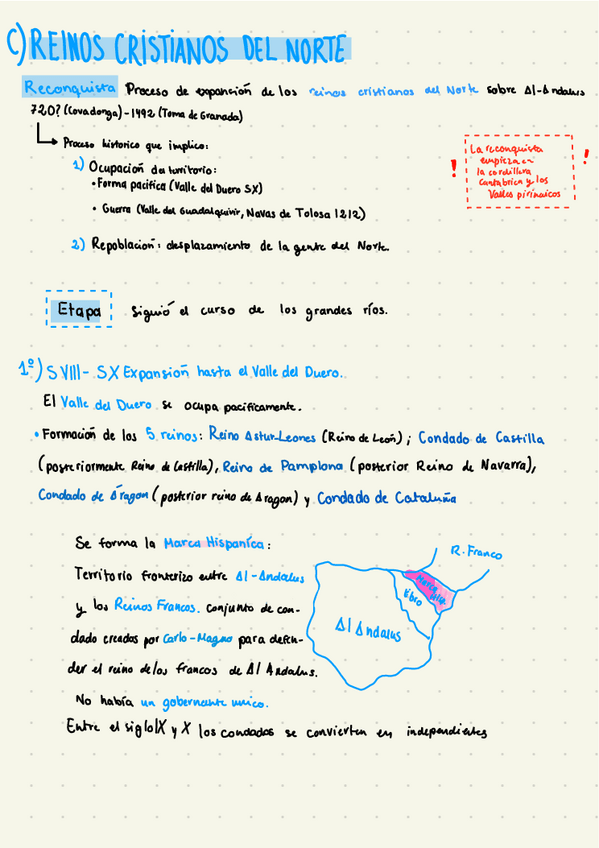 C) REINOS CRISTIANOS DEL NORTE
Reconquista Proceso de expansión de los reinos cristianos del Norte sobre Al-Andalus
720? (Covadonga) - 1492 (Toma de Granada)
Proceso historico que implico:
1) Ocupación del territorio:
• Forma pacifica (Valle del Duero SX)
• Guerra (Valle del Guadalquivir, Navas de Tolosa 1212)
2) Repoblación: desplazamiento de la gente del Norte.
! La reconquista !
empieza en
la cordillera
cantabrica y los
Valles pirinaicos
Etapa Siguió el curso de los grandes ríos.
1º) SVIII - SX Expansión hasta el Valle del Duero.
El Valle del Duero se ocupa pacificamente.
• Formación de los 5 reinos: Reino Astur-Leones (Reino de León) ; Condado de Castilla
(posteriormente Reino de Castilla), Reino de Pamplona (posterior Reino de Navarra),
Condado de Áragon (posterior reino de Aragon) y Condado de Cataluña
Se forma la Marca Hispaníca:
Territorio fronterizo entre Al-Andalus
y los Reinos Francos. conjunto de con-
dado creados por Carlo-Magno para defen-
der el reino de los francos de Al Andalus.
No había un gobernante unico.
Entre el siglo IX y X los condados se convierten en independientes
R. Franco
Marca
Hisp.
Ebro
Al Andalus